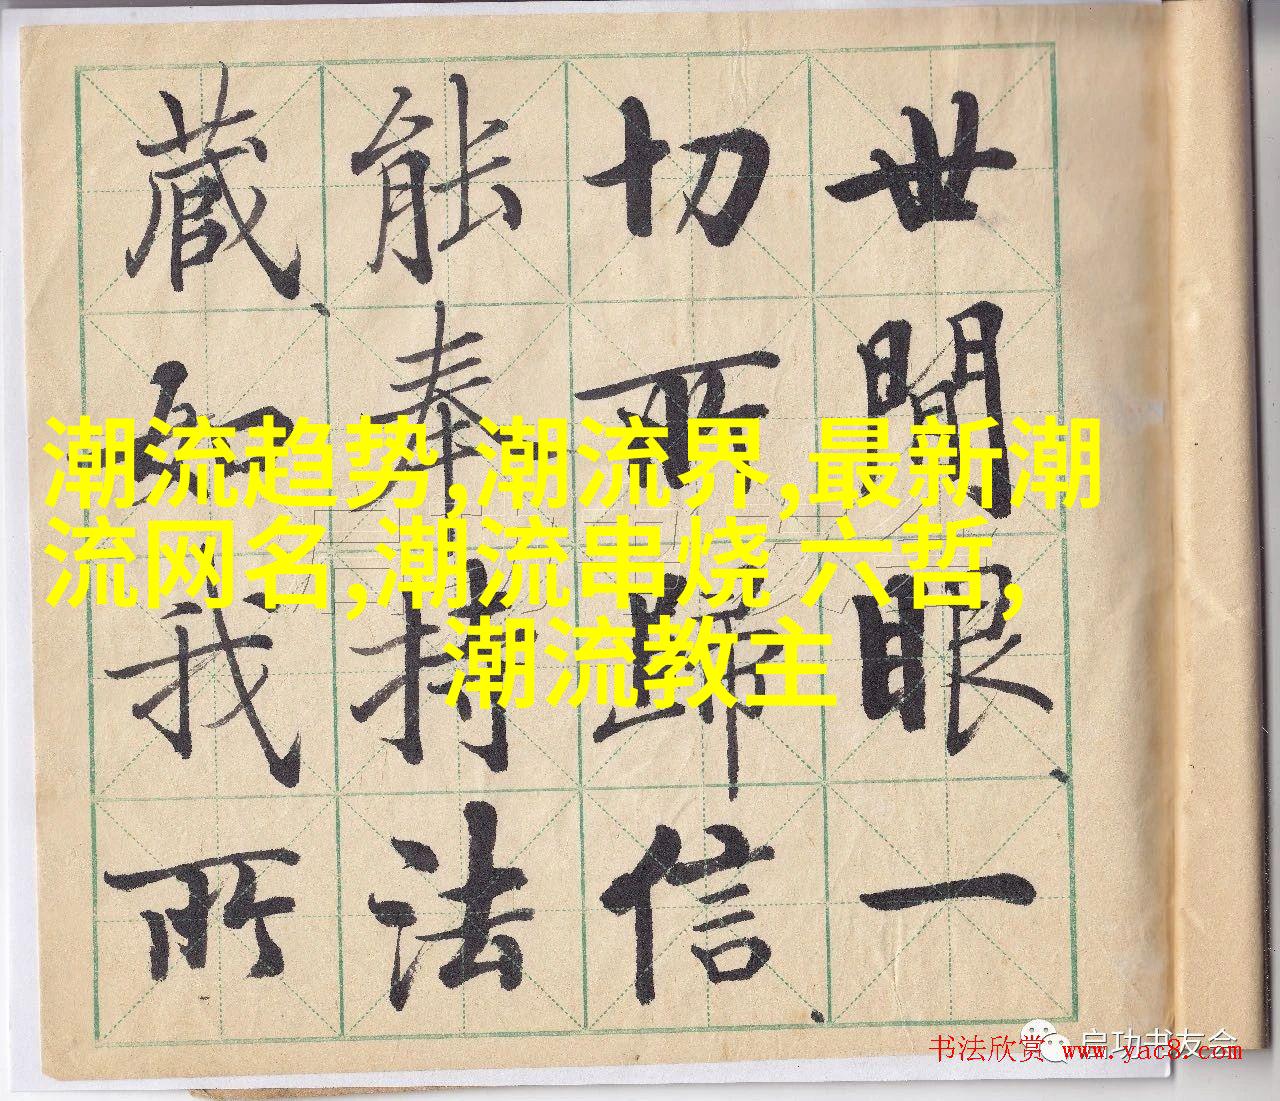 世間眼、一
切所歸信、
能奉持法
藏、如我所
潮流趋势,潮流界,最新潮
流网名,潮流串烧 六哲,
潮流教主
启功书友会
书法欣赏 www.yac8.com